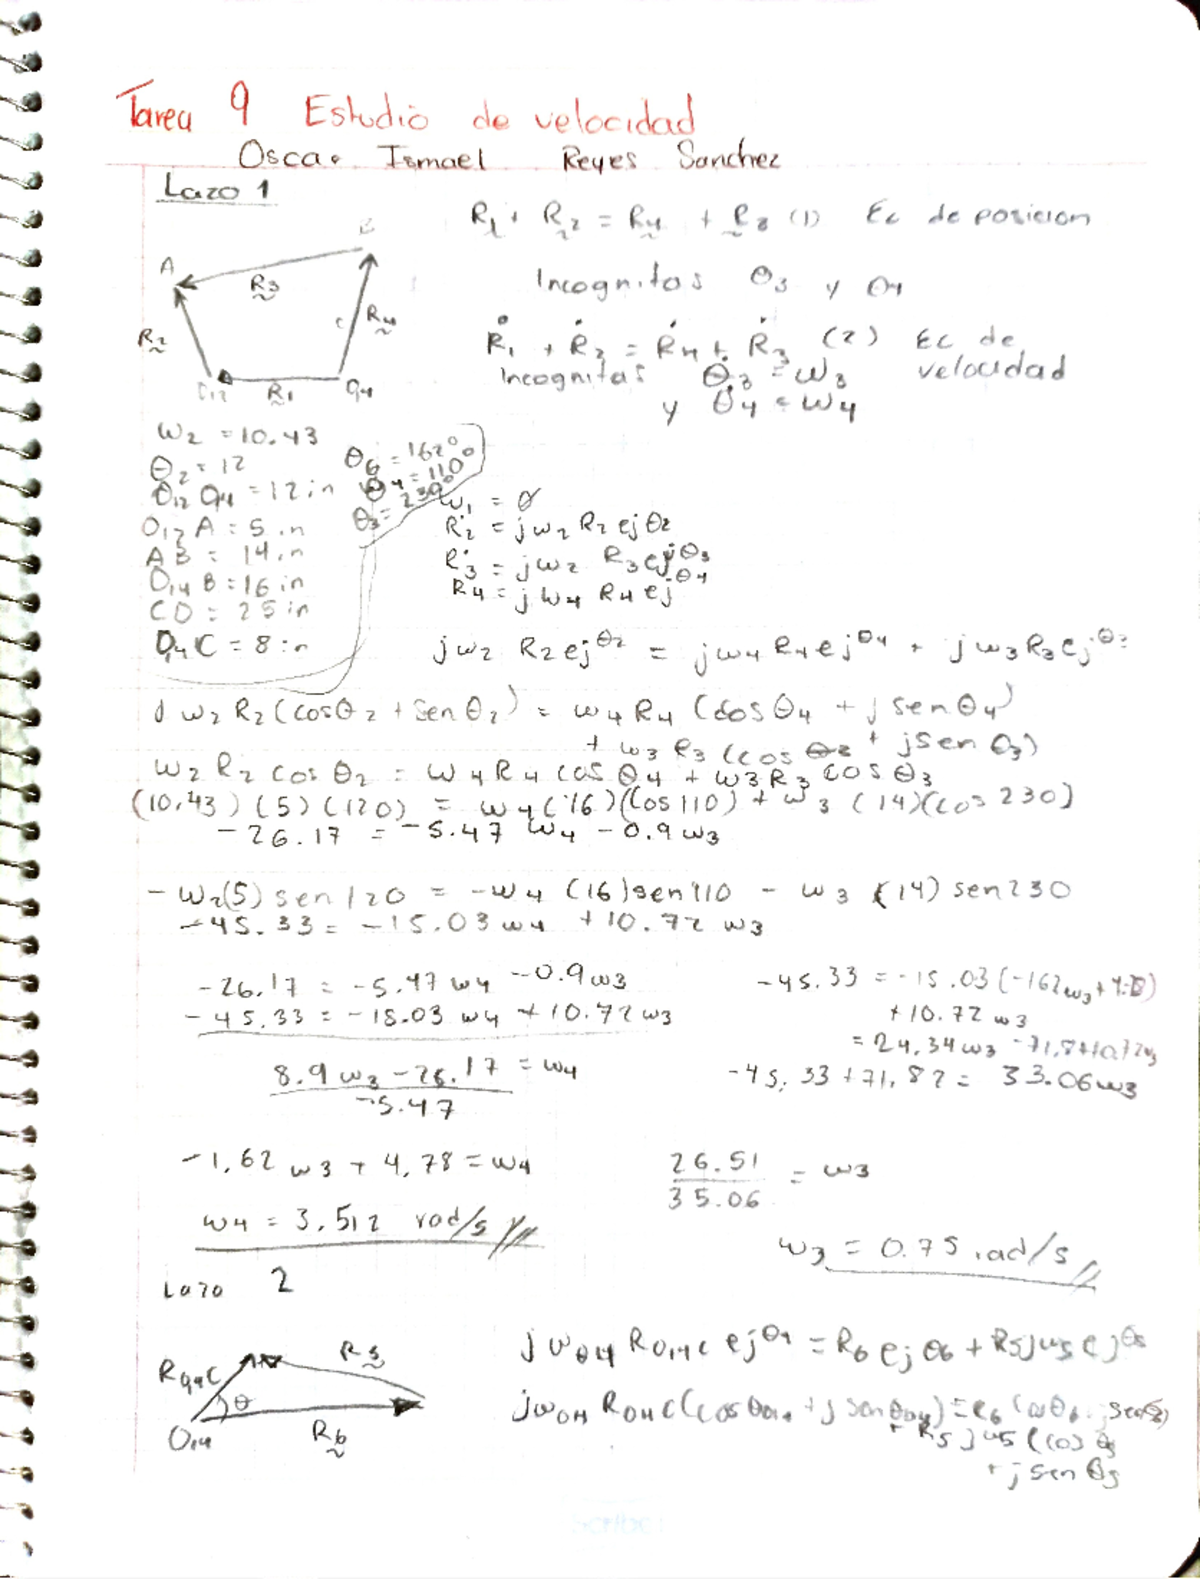 Tarea 9 Estudio de velocidad
Osca. Ismael Reyes Sanchez
Lazo 1
R1 + R2 = R4 + R3 (1) Ec de posicion
Incognitas θ3 y θ4
Ṙ1 + Ṙ2 = Ṙ4 + Ṙ3 (2) Ec de velocidad
Incognitas θ̇3 = ω3
y θ̇4 = ω4
A
B
R3
R2
R4
C
O12
R1
O4
ω2 = 10.43
θ2 = 12
O12 O4 = 12 in
O12 A = 5 in
AB = 14 in
O14 B = 16 in
CD = 25 in
O4 C = 8 in
θ6 = 162°
θ4 = 110°
θ3 = 230°
ω1 = 0
Ṙ2 = jω2 R2 ejθ2
Ṙ3 = jω2 R3 ejθ3
R4 = jω4 R4 ejθ4
jω2 R2 ejθ2 = jω4 R4 ejθ4 + jω3 R3 ejθ3
j ω2 R2 (cosθ2 + senθ2) = ω4 R4 (cosθ4 + j senθ4)
+ ω3 R3 (cos θ2 + jsen θ3)
ω2 R2 cos θ2 = ω4 R4 cos θ4 + ω3 R3 cos θ3
(10.43)(5)(120) = ω4(16)(cos 110) + ω3 (14)(cos 230)
-26.17 = -5.47 ω4 - 0.9 ω3
- ω2(5) sen 120 = -ω4 (16) sen 110 - ω3 (14) sen 230
-45.33 = -15.03 ω4 + 10.72 ω3
-26.17 = -5.47 ω4 - 0.9 ω3
-45.33 = -15.03 ω4 + 10.72 ω3
8.9 ω3 - 26.17 = ω4
-5.47
-1.62 ω3 + 4,78 = ω4
ω4 = 3.512 rad/s
-45.33 = -15.03 (-162 ω3 + 4.78)
+ 10.72 ω3
= 24,34 ω3 - 71,8 + 10.72 ω3
-45,33 + 71,82 = 33.06 ω3
26.51 = ω3
35.06
ω3 = 0.75 rad/s
Lazo 2
RO4C
R5
θ
O14
R6
jωO4 RO14C ejθ4 = R6 ejθ6 + R5jω5 ejθ5
jωO4 RO4C (cosθO4 + j senθO4) = R6 (cosθ6 + j senθ6)
+ R5 jω5 (cos θ5
+ j sen θ5
Scribe